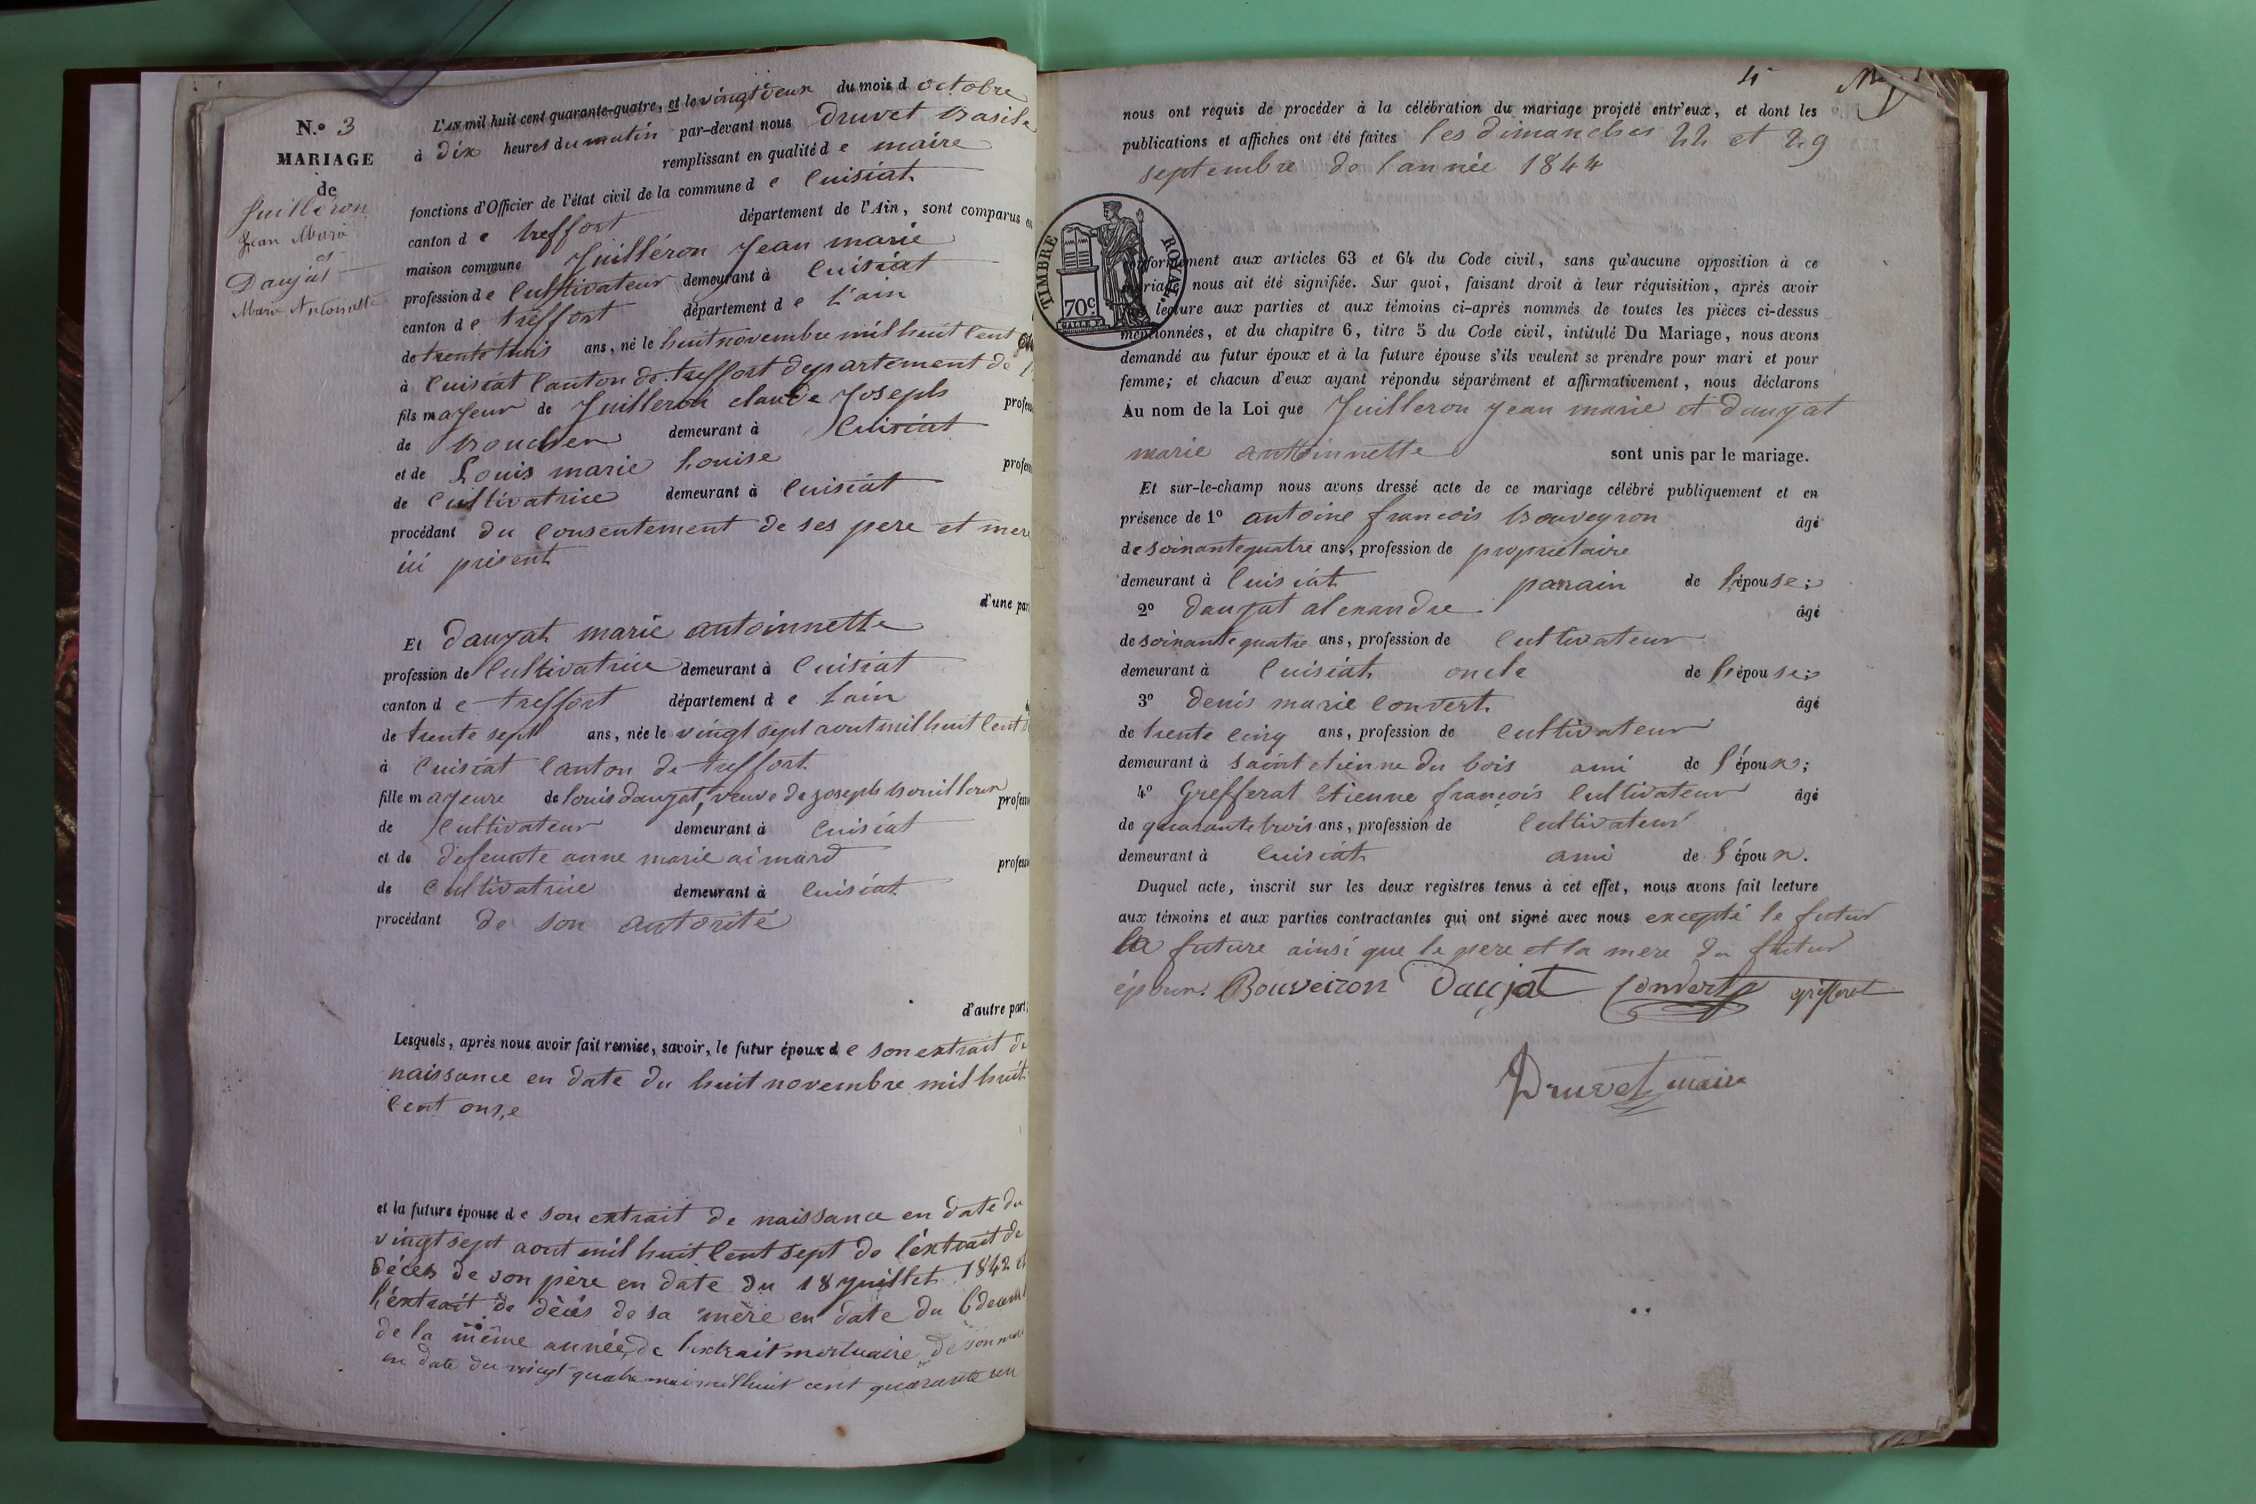 N.o 3
MARIAGE
de
Juilleron
Jean Marie
et
Daujat
Marie Antoinette
L'AN mil huit cent quarante-quatre, et le vingt deux du mois d octobre
à dix heures du matin par-devant nous Druvet Basile
remplissant en qualité d e maire
fonctions d'Officier de l'état civil de la commune d e Cuisiat
canton d e treffort département de l'Ain, sont comparus en
maison commune Juilléron Jean marie
profession d e Cultivateur demeurant à Cuisiat
canton d e treffort département d e l'ain
de trente trois ans, né le huit novembre mil huit Cent
à Cuisiat Canton de treffort departement de
fils majeur de Juilleron claude Joseph profes
de Boucher demeurant à Cuisiat
et de Louis marie Louise profes
de Cultivatrice demeurant à Cuisiat
procédant du Consentement de ses pere et mere
ici présent
d'une par
Et daujat marie antoinnette
profession de Cultivatrice demeurant à Cuisiat
canton d e treffort département d e Lain
de trente sept ans, née le vingt sept aout mil huit Cent
à Cuisiat Canton de treffort
fille majeure de Louis daujat, veuve de Joseph Bouilloux profes
de Cultivateur demeurant à Cuisiat
et de defeunte anne marie aimard profes
de Cultivatrice demeurant à Cuisiat
procédant de son autorité
d'autre part;
Lesquels, après nous avoir fait remise, savoir, le futur époux d e son extrait de
naissance en date du huit novembre mil huit
Cent onze
et la future épouse d e son extrait de naissance en date du
vingt sept aout mil huit Cent sept de l'éxtrait de
décés de son père en date du 18 juillet 1842 et
l'éxtrait de décés de sa mère en date du 6 decemb
de la même année, de l'extrait mortuaire de son mari
en date du vingt quatre mai mil huit cent quarante un
4
nous ont requis de procéder à la célébration du mariage projeté entr'eux, et dont les
publications et affiches ont été faites les dimanches 22 et 29
septembre de l'année 1844
TIMBRE ROYAL.
70c.
conformément aux articles 63 et 64 du Code civil, sans qu'aucune opposition à ce
mariage nous ait été signifiée. Sur quoi, faisant droit à leur réquisition, après avoir
lecture aux parties et aux témoins ci-après nommés de toutes les pièces ci-dessus
mentionnées, et du chapitre 6, titre 5 du Code civil, intitulé Du Mariage, nous avons
demandé au futur époux et à la future épouse s'ils veulent se prendre pour mari et pour
femme; et chacun d'eux ayant répondu séparément et affirmativement, nous déclarons
Au nom de la Loi que Juilleron Jean marie et daujat
marie anttoinnette sont unis par le mariage.
Et sur-le-champ nous avons dressé acte de ce mariage célébré publiquement et en
présence de 1o antoine francois Bouveyron âgé
de soixante quatre ans, profession de proprietaire
demeurant à Cuisiat parrain de l'épouse;
2o daujat alexandre âgé
de soixante quatre ans, profession de Cultivateur
demeurant à Cuisiat oncle de l'épouse;
3o denis marie Convert âgé
de trente cinq ans, profession de Cultivateur
demeurant à Saint etienne du bois ami de l'époux;
4o Grefferat Etienne françois Cultivateur âgé
de quarante trois ans, profession de Cultivateur
demeurant à Cuisiat ami de l'époux.
Duquel acte, inscrit sur les deux registres tenus à cet effet, nous avons fait lecture
aux témoins et aux parties contractantes qui ont signé avec nous excepté le futur
la future ainsi que le pere et la mere du futur
époux. Bouveiron Daujat Convert grefferet
Druvet maire